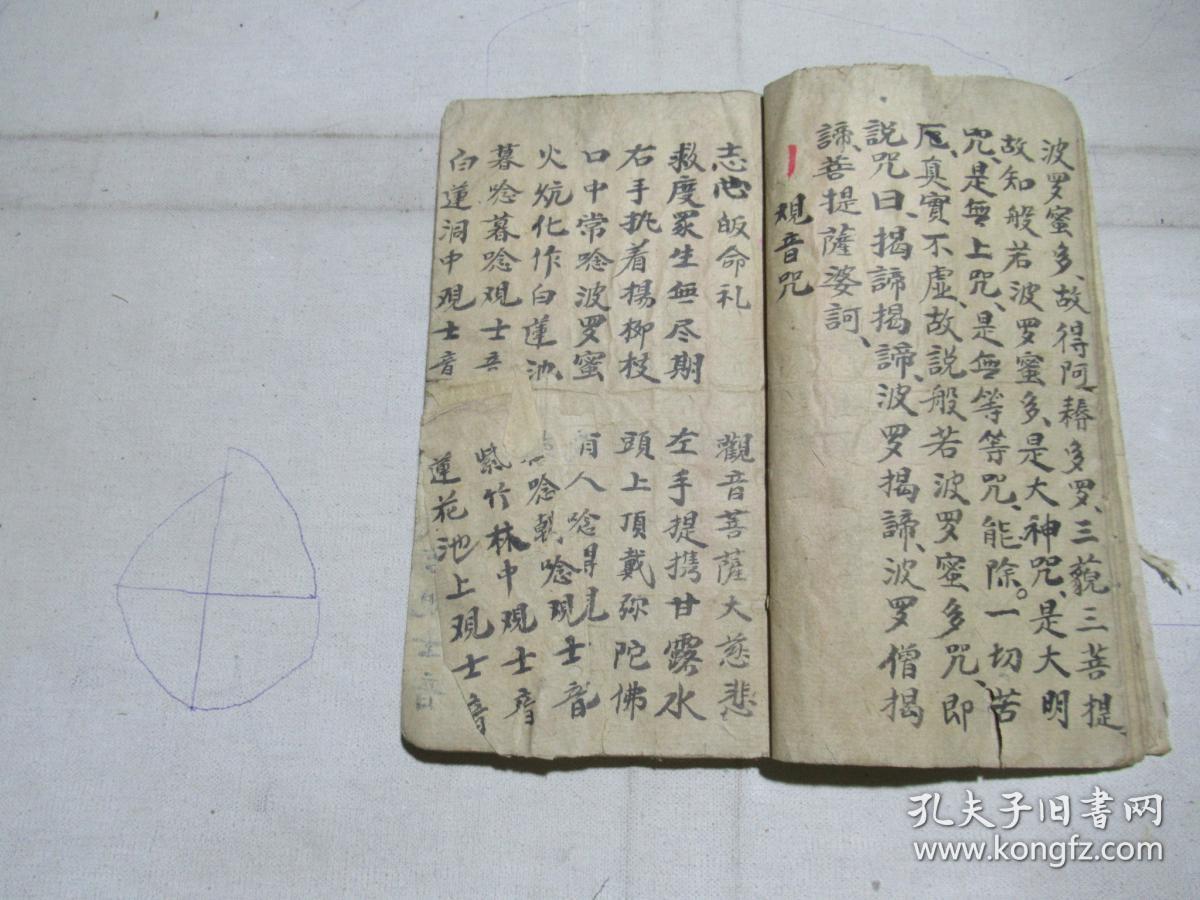 波罗蜜多、故得阿耨多罗、三藐三菩提
故知般若波罗蜜多、是大神咒、是大明
咒、是無上咒、是無等等咒、能除。一切苦
厄、真實不虛、故説般若波罗蜜多咒、即
説咒曰、揭諦揭諦、波罗揭諦、波罗僧揭
諦、菩提薩婆訶、
观音咒
志心皈命礼 觀音菩薩大慈悲
救度衆生無尽期 左手提携甘露水
右手执着楊柳枝 頭上頂戴弥陀佛
口中常唸波罗蜜 有人唸得見
火炕化作白蓮池 唸观士音
暮唸暮唸观士音 紫竹林中观士音
白蓮洞中观士音 蓮花池上观士音
孔夫子旧书网
www.kongfz.com